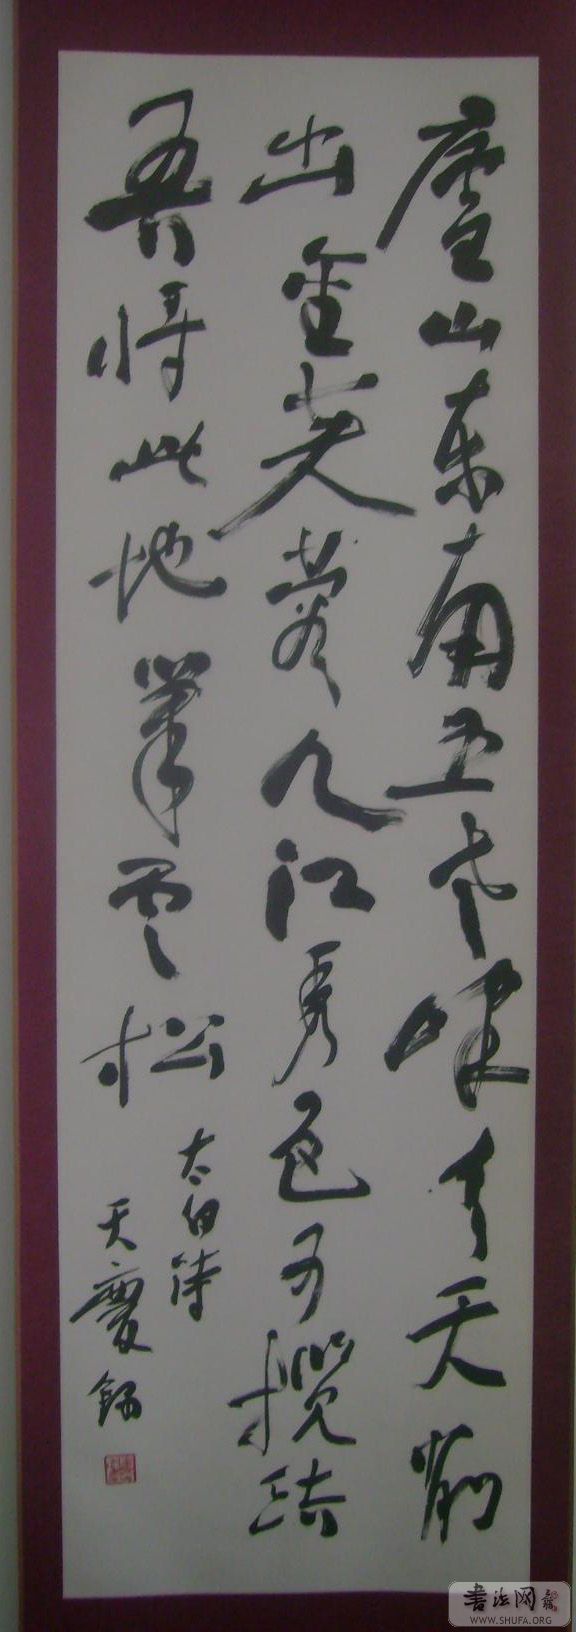 廬山东南五老峰青天削
出金芙蓉九江秀色可攬结
吾将此地巢雲松
太白诗
天慶
书法网
WWW.SHUFA.ORG